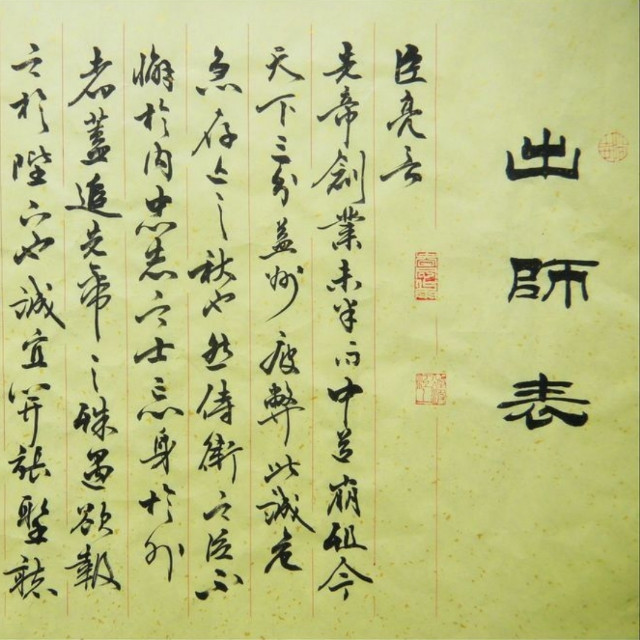 出師表
臣亮言
先帝創業未半而中道崩殂今
天下三分益州疲弊此誠危
急存亡之秋也然侍衛之臣不
懈於內忠志之士忘身於外
者蓋追先帝之殊遇欲報
之於陛下也誠宜開張聖聽